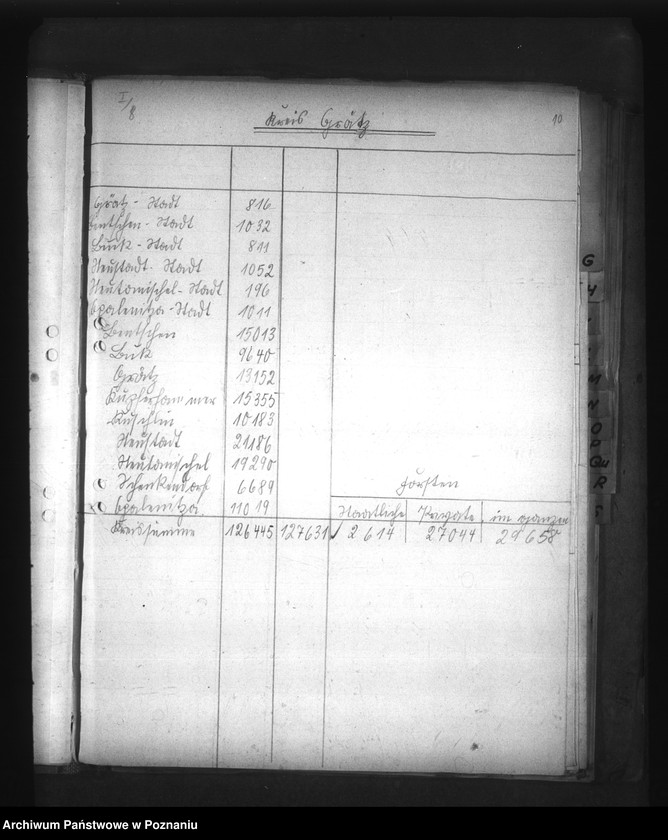 I/8
Kreis Grätz
10
Grätz - Stadt 816
Bentschen - Stadt 1032
Buk - Stadt 811
Neustadt - Stadt 1052
Neutomischel - Stadt 196
Opalenitza - Stadt 1011
Bentschen 15013
Buk 9640
Grätz 13152
Kupferhammer 15355
Kuschlin 10183
Neustadt 21186
Neutomischel 19290
Schenkendorf 6689
Opalenitza 11019
Forsten
Staatliche Private im ganzen
Kreissumme 126445 127631 ✓ 2614 27044 29658
G
H
M
N
O
P
Qu
R
S
Archiwum Państwowe w Poznaniu